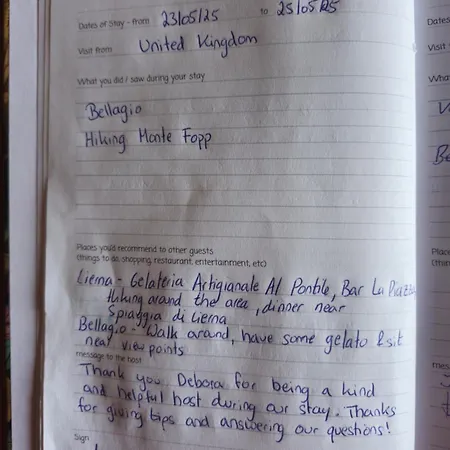 Dates of Stay - from 23/05/25 to 25/05/25
Visit from United Kingdom
What you did / saw during your stay
Bellagio
Hiking Monte Fopp
Places you'd recommend to other guests
(things to do, shopping, restaurant, entertainment, etc)
Lierna - Gelateria Artigianale Al Pontile, Bar La Piazza
Hiking around the area, dinner near
Spiaggia di Lierna
Bellagio - Walk around, have some gelato & sit
near view points
message to the host
Thank you Debora for being a kind
and helpful host during our stay. Thanks
for giving tips and answering our questions!
Sign
Dates
Visit
Wha
Be
Place
(thin